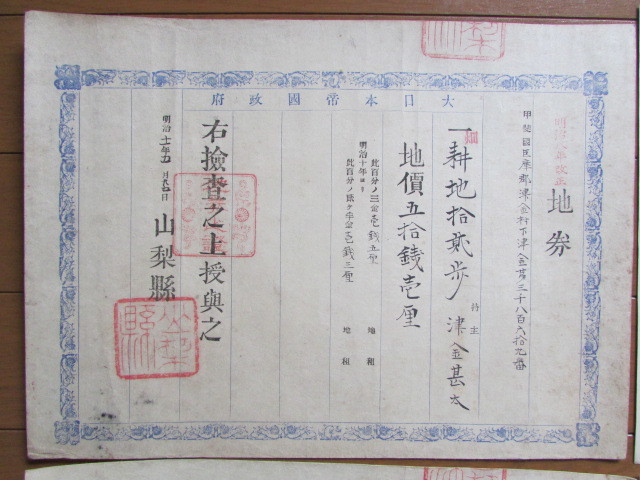 大日本帝國政府
明治九年改正
地券
甲斐國巨摩郡津金村下津金第三千八百六拾九番
一耕地拾貳歩
持主 津金甚太
地價五拾錢壱厘
此百分ノ三金壱錢五厘 地租
明治十年ヨリ
此百分ノ貳ヶ半金壱錢三厘 地租
右撿査之上授與之
明治十一年五月
山梨縣